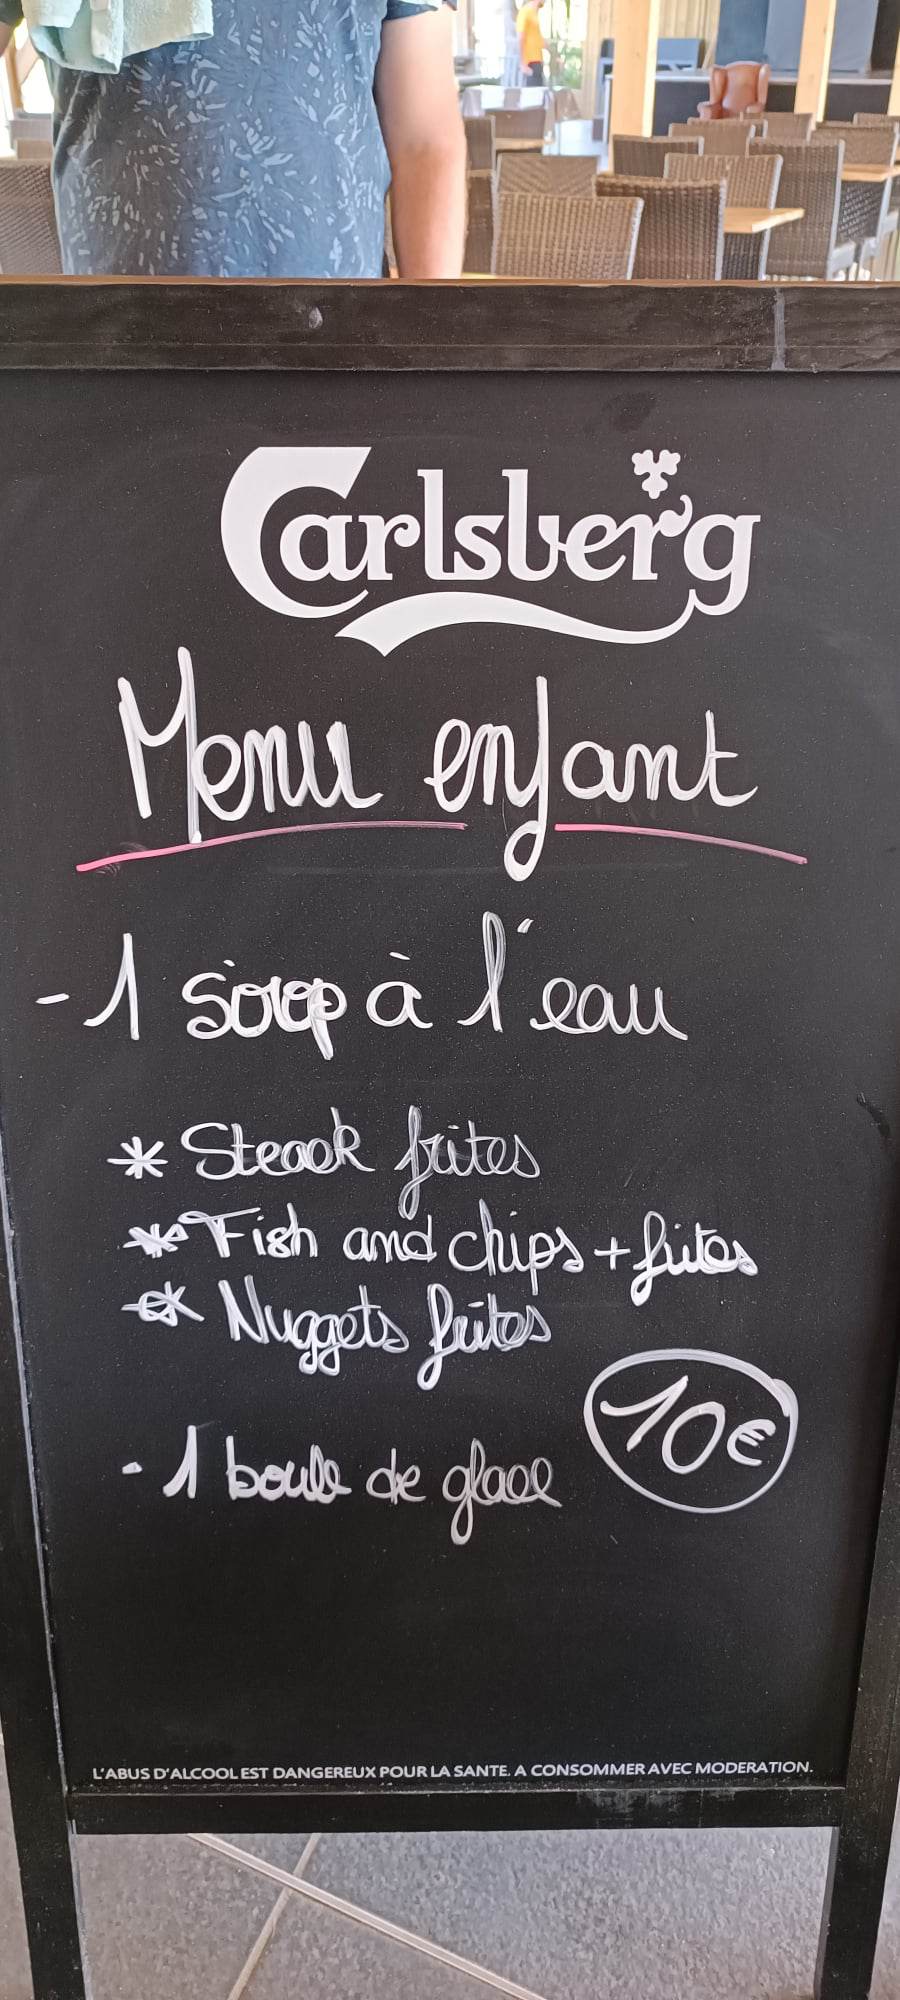 Carlsberg
Menu enfant
- 1 sirop à l'eau
* Steack frites
* Fish and chips + frites
* Nuggets frites
10€
- 1 boule de glace
L'ABUS D'ALCOOL EST DANGEREUX POUR LA SANTE. A CONSOMMER AVEC MODERATION.